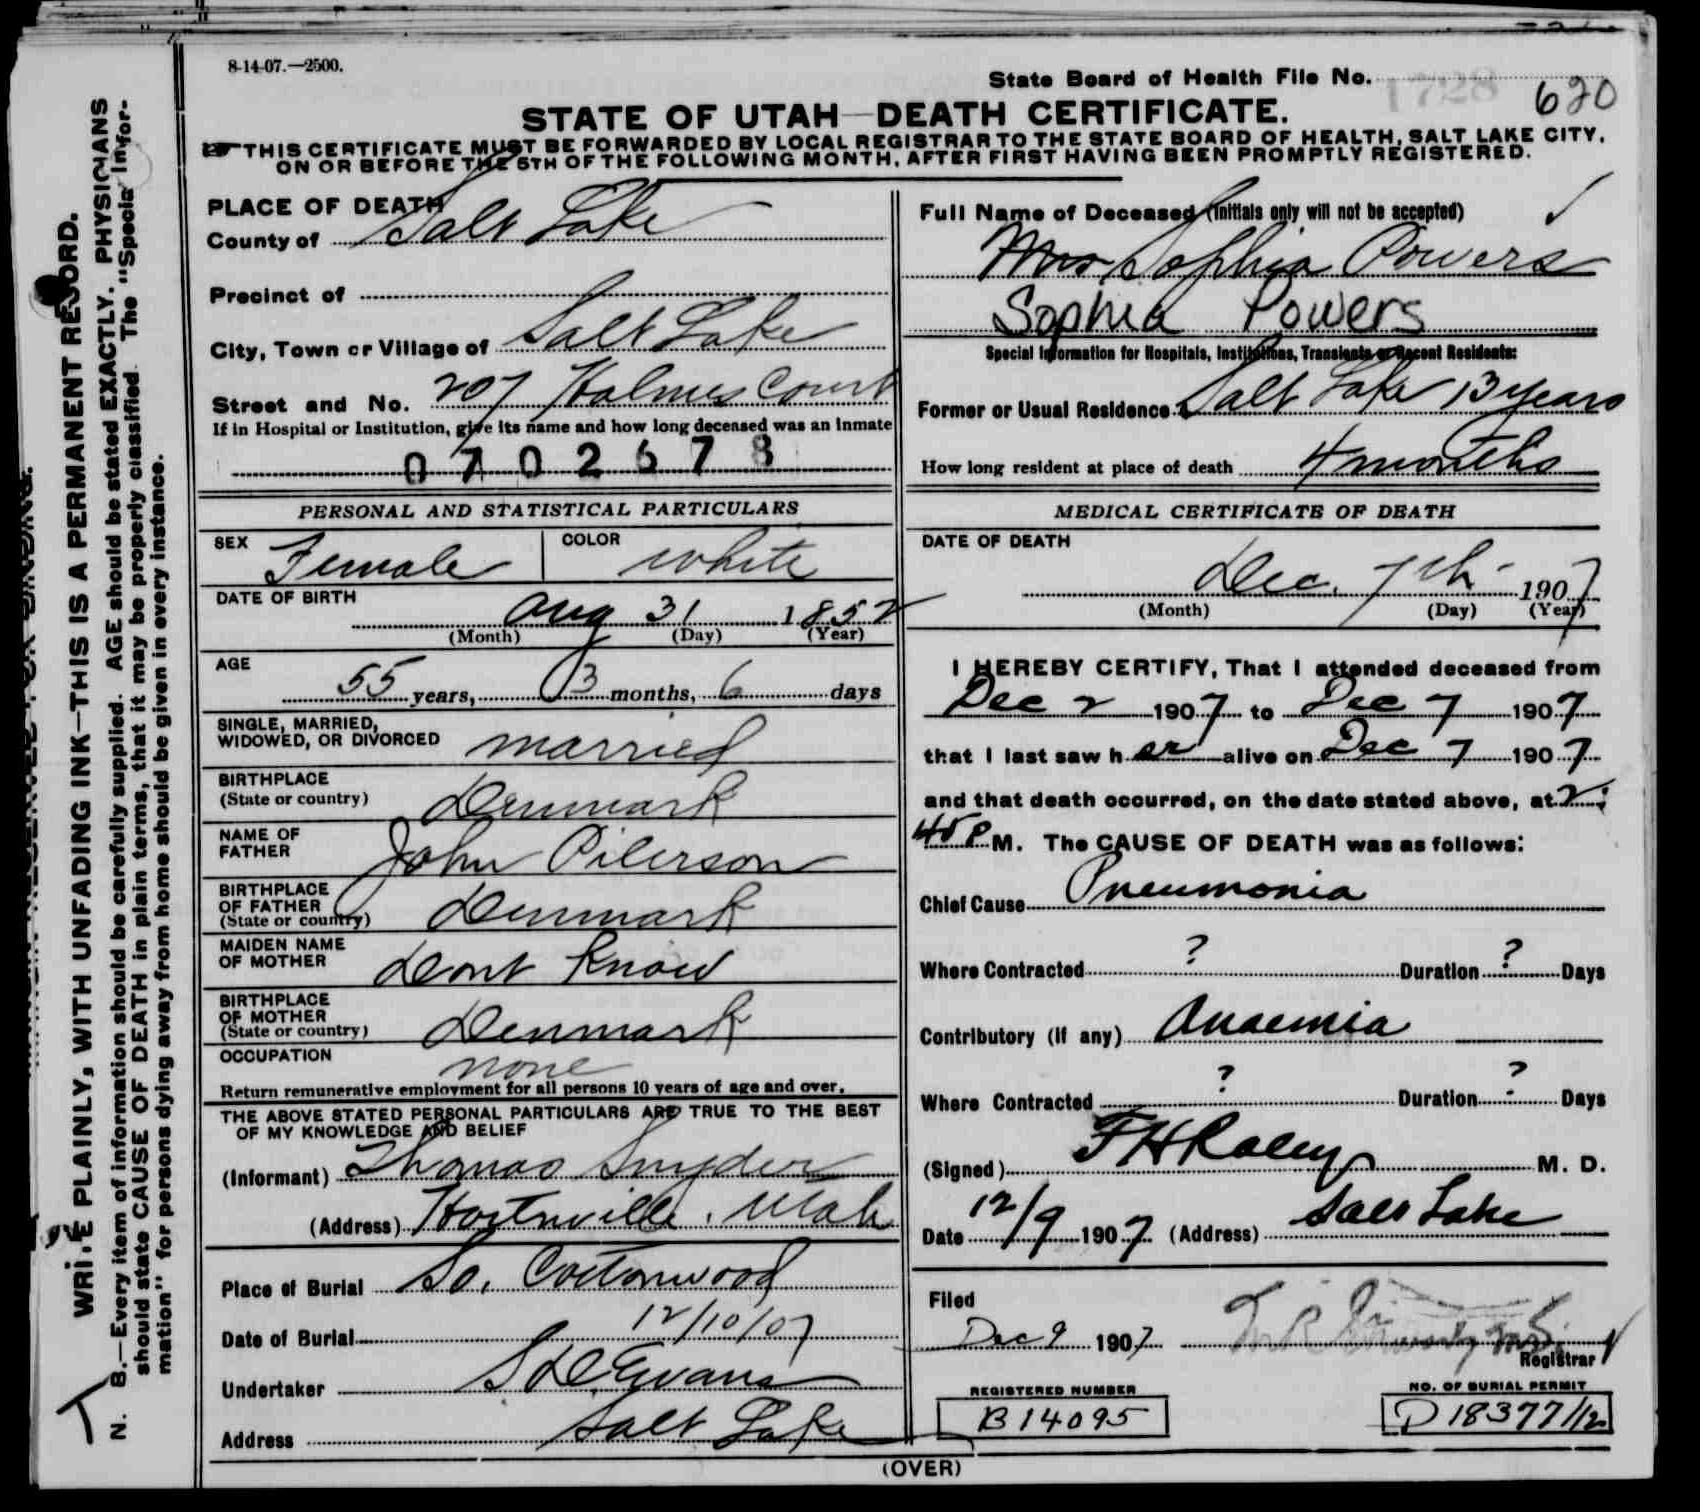 8-14-07.—2500.
State Board of Health File No. 1728 620
STATE OF UTAH—DEATH CERTIFICATE.
THIS CERTIFICATE MUST BE FORWARDED BY LOCAL REGISTRAR TO THE STATE BOARD OF HEALTH, SALT LAKE CITY,
ON OR BEFORE THE 5TH OF THE FOLLOWING MONTH, AFTER FIRST HAVING BEEN PROMPTLY REGISTERED.
PLACE OF DEATH
County of Salt Lake
Precinct of
City, Town or Village of Salt Lake
Street and No. 207 Holmes Court
If in Hospital or Institution, give its name and how long deceased was an Inmate
0702678
PERSONAL AND STATISTICAL PARTICULARS
SEX Female COLOR White
DATE OF BIRTH Aug 31 1852
(Month) (Day) (Year)
AGE 55 years, 3 months, 6 days
SINGLE, MARRIED,
WIDOWED, OR DIVORCED married
BIRTHPLACE
(State or country) Denmark
NAME OF
FATHER John Pilerson
BIRTHPLACE
OF FATHER
(State or country) Denmark
MAIDEN NAME
OF MOTHER Dont Know
BIRTHPLACE
OF MOTHER
(State or country) Denmark
OCCUPATION none
Return remunerative employment for all persons 10 years of age and over.
THE ABOVE STATED PERSONAL PARTICULARS ARE TRUE TO THE BEST
OF MY KNOWLEDGE AND BELIEF
(Informant) Thomas Snyder
(Address) Utah
Place of Burial So. Cottonwood
Date of Burial 12/10/07
Undertaker S D Evans
Address Salt Lake
Full Name of Deceased (Initials only will not be accepted)
Mrs Sophia Powers
Sophia Powers
Special Information for Hospitals, Institutions, Transients or Recent Residents:
Former or Usual Residence Salt Lake 13 years
How long resident at place of death 4 months
MEDICAL CERTIFICATE OF DEATH
DATE OF DEATH
Dec. 7th 1907
(Month) (Day) (Year)
I HEREBY CERTIFY, That I attended deceased from
Dec 2 1907 to Dec 7 1907
that I last saw her alive on Dec 7 1907
and that death occurred, on the date stated above, at 2:
45 P M. The CAUSE OF DEATH was as follows:
Chief Cause Pneumonia
Where Contracted ? Duration ? Days
Contributory (if any) Anaemia
Where Contracted ? Duration ? Days
(Signed) F H Raley M. D.
Date 12/9 1907 (Address) Salt Lake
Filed
Dec 9 1907
Registrar
REGISTERED NUMBER
B 14095
NO. OF BURIAL PERMIT
D 18377/12
(OVER)
WRITE PLAINLY, WITH UNFADING INK—THIS IS A PERMANENT RECORD.
N. B.—Every item of information should be carefully supplied. AGE should be stated EXACTLY. PHYSICIANS
should state CAUSE OF DEATH in plain terms, that it may be properly classified. The "Special Infor-
mation" for persons dying away from home should be given in every instance.